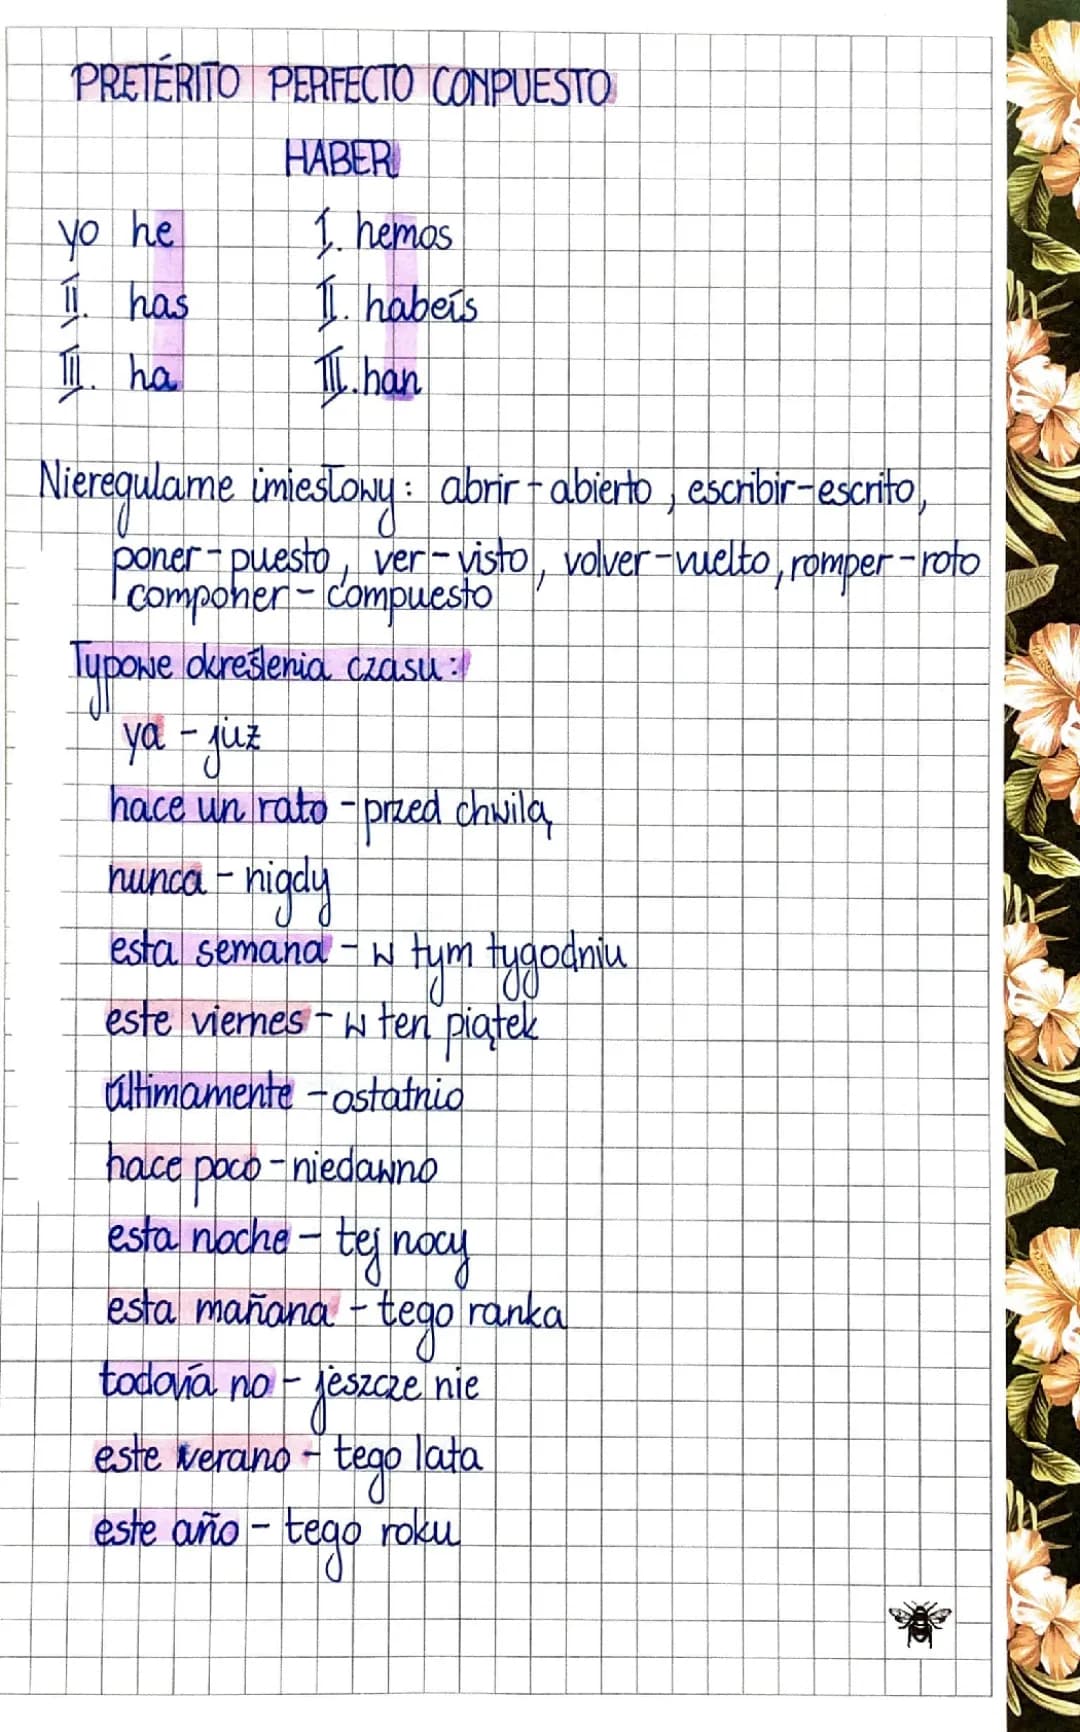 PRETÉRITO PERFECTO CONPUESTO
HABER
yo he I. hemos
II. has II. habeís
III. ha III. han
Nieregularne imiesłowy: abrir - abierto, escribir-escrito,
poner - puesto, ver - visto, volver-vuelto, romper - roto
componer - compuesto
Typowe określenia czasu:
ya - już
hace un rato - przed chwilą
nunca - nigdy
esta semana - w tym tygodniu
este viernes - w ten piątek
últimamente - ostatnio
hace poco - niedawno
esta noche - tej nocy
esta mañana - tego ranka
todavía no - jeszcze nie
este verano - tego lata
este año - tego roku